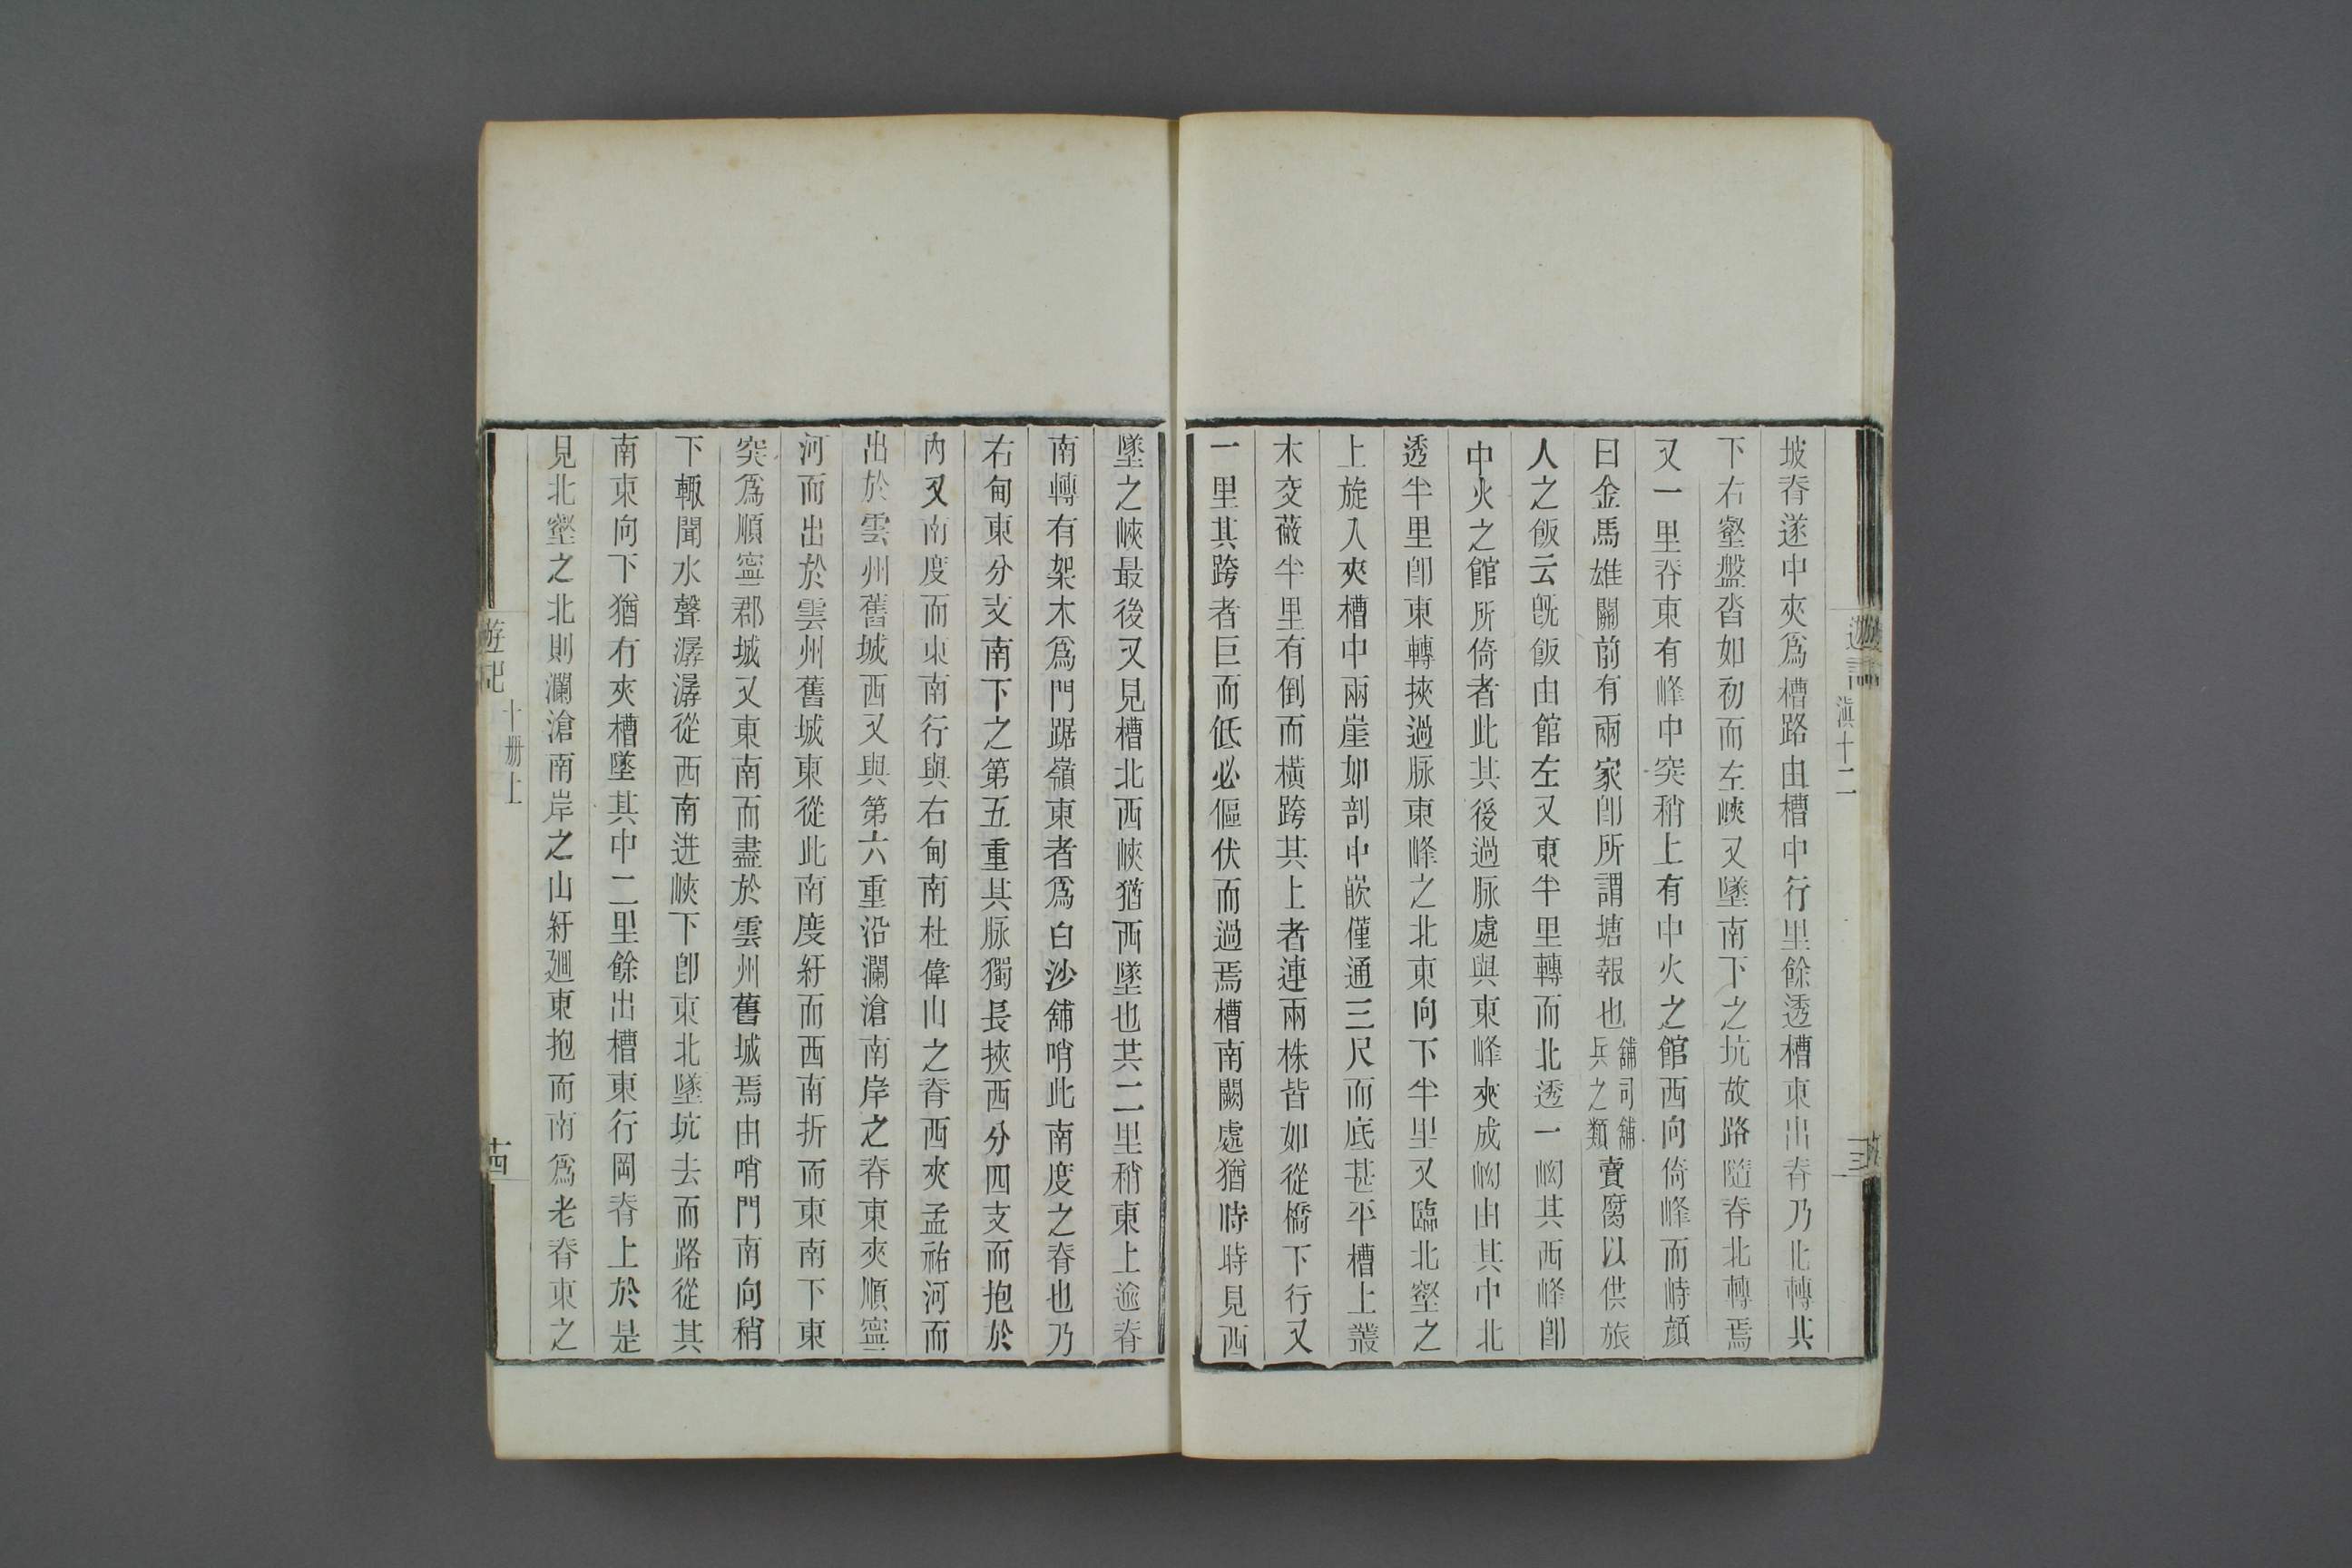 坡脊遂中夾爲槽路由槽中行里餘透槽東出脊乃北轉其
下右壑盤沓如初而左峽又墜南下之坑故路隨脊北轉焉
又一里脊東有峰中突稍上有中火之館西向倚峰而峙顔
曰金馬雄關前有兩家卽所謂塘報也舖司舖兵之類賣腐以供旅
人之飯云旣飯由館左又東半里轉而北透一㘭其西峰卽
中火之館所倚者此其後過脉處與東峰夾成㘭由其中北
透半里卽東轉挾過脉東峰之北東向下半里又臨北壑之
上旋入夾槽中兩崖如剖中嵌僅通三尺而底甚平槽上叢
木交蔽半里有倒而橫跨其上者連兩株皆如從橋下行又
一里其跨者巨而低必傴伏而過焉槽南闕處猶時時見西
墜之峽最後又見槽北西峽猶西墜也共二里稍東上逾脊
南轉有架木爲門踞嶺東者爲白沙舖哨此南度之脊也乃
右甸東分支南下之第五重其脉獨長挾西分四支而抱於
內又南度而東南行與右甸南杜偉山之脊西夾孟祐河而
出於雲州舊城西又與第六重沿瀾滄南岸之脊東夾順寧
河而出於雲州舊城東從此南度紆而西南折而東南下東
突爲順寧郡城又東南而盡於雲州舊城焉由哨門南向稍
下輙聞水聲潺潺從西南迸峽下卽東北墜坑去而路從其
南東向下猶有夾槽墜其中二里餘出槽東行岡脊上於是
見北壑之北則瀾滄南岸之山紆廻東抱而南爲老脊東之
遊記
滇十二
遊記
十册上
十四